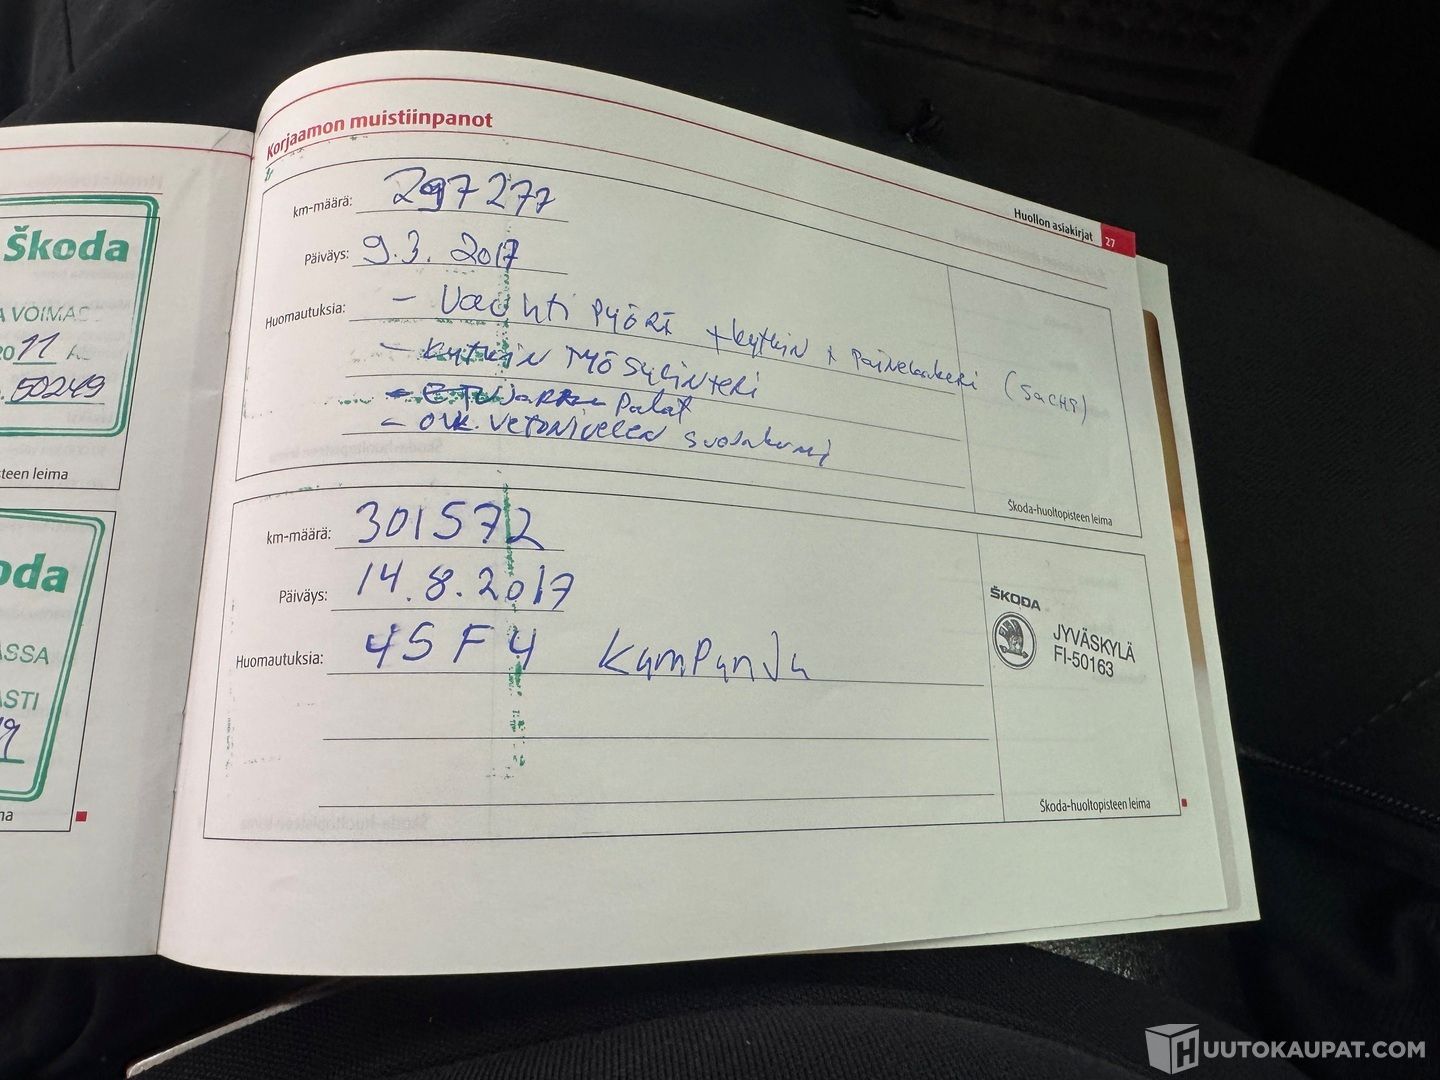 Škoda
A VOIMAS
2011
50249
steen leima
oda
ASSA
ASTI
na
Korjaamon muistiinpanot
Huollon asiakirjat 27
km-määrä: 297277
Päiväys: 9.3.2017
Huomautuksia: - Vauhti pyörä + kytkin + painelaakeri (SACHS)
- kytkin työsylinteri
- ETUJarru Palat
- ovk. vetonivelen suojakumi
Škoda-huoltopisteen leima
km-määrä: 301572
Päiväys: 14.8.2017
Huomautuksia: 45F4 Kampanja
ŠKODA
JYVÄSKYLÄ
FI-50163
Škoda-huoltopisteen leima
HUUTOKAUPAT.COM